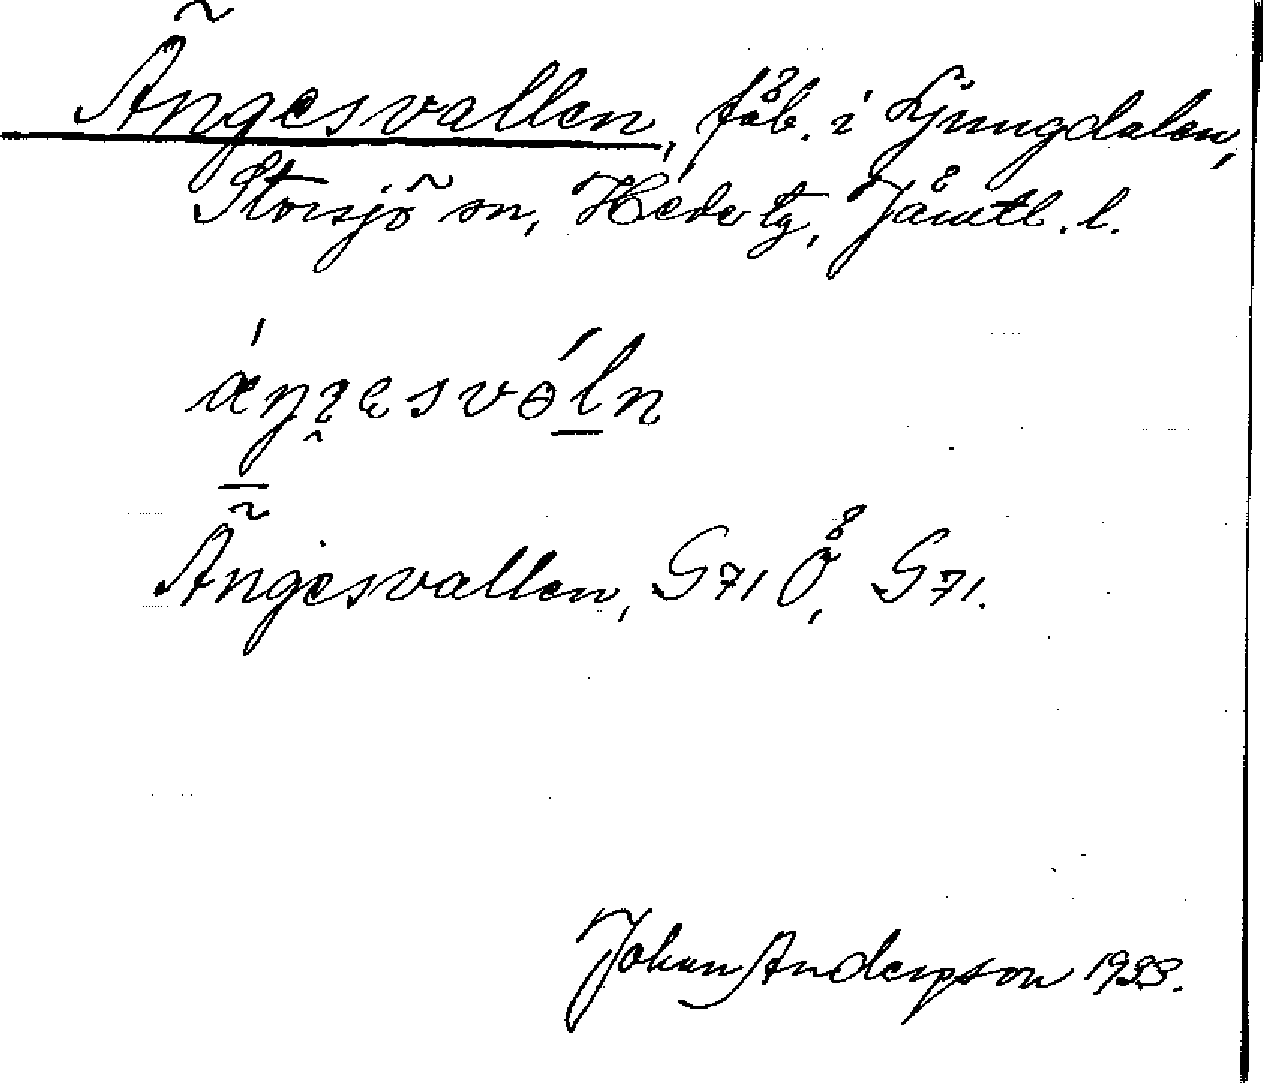 Ängesvallen, fäb. i Ljungdalen,
Storsjö sn, Hede tg, Jämtl. l.
Ängesvallen, G71 Ö, G71.
Johan Anderson 1933.